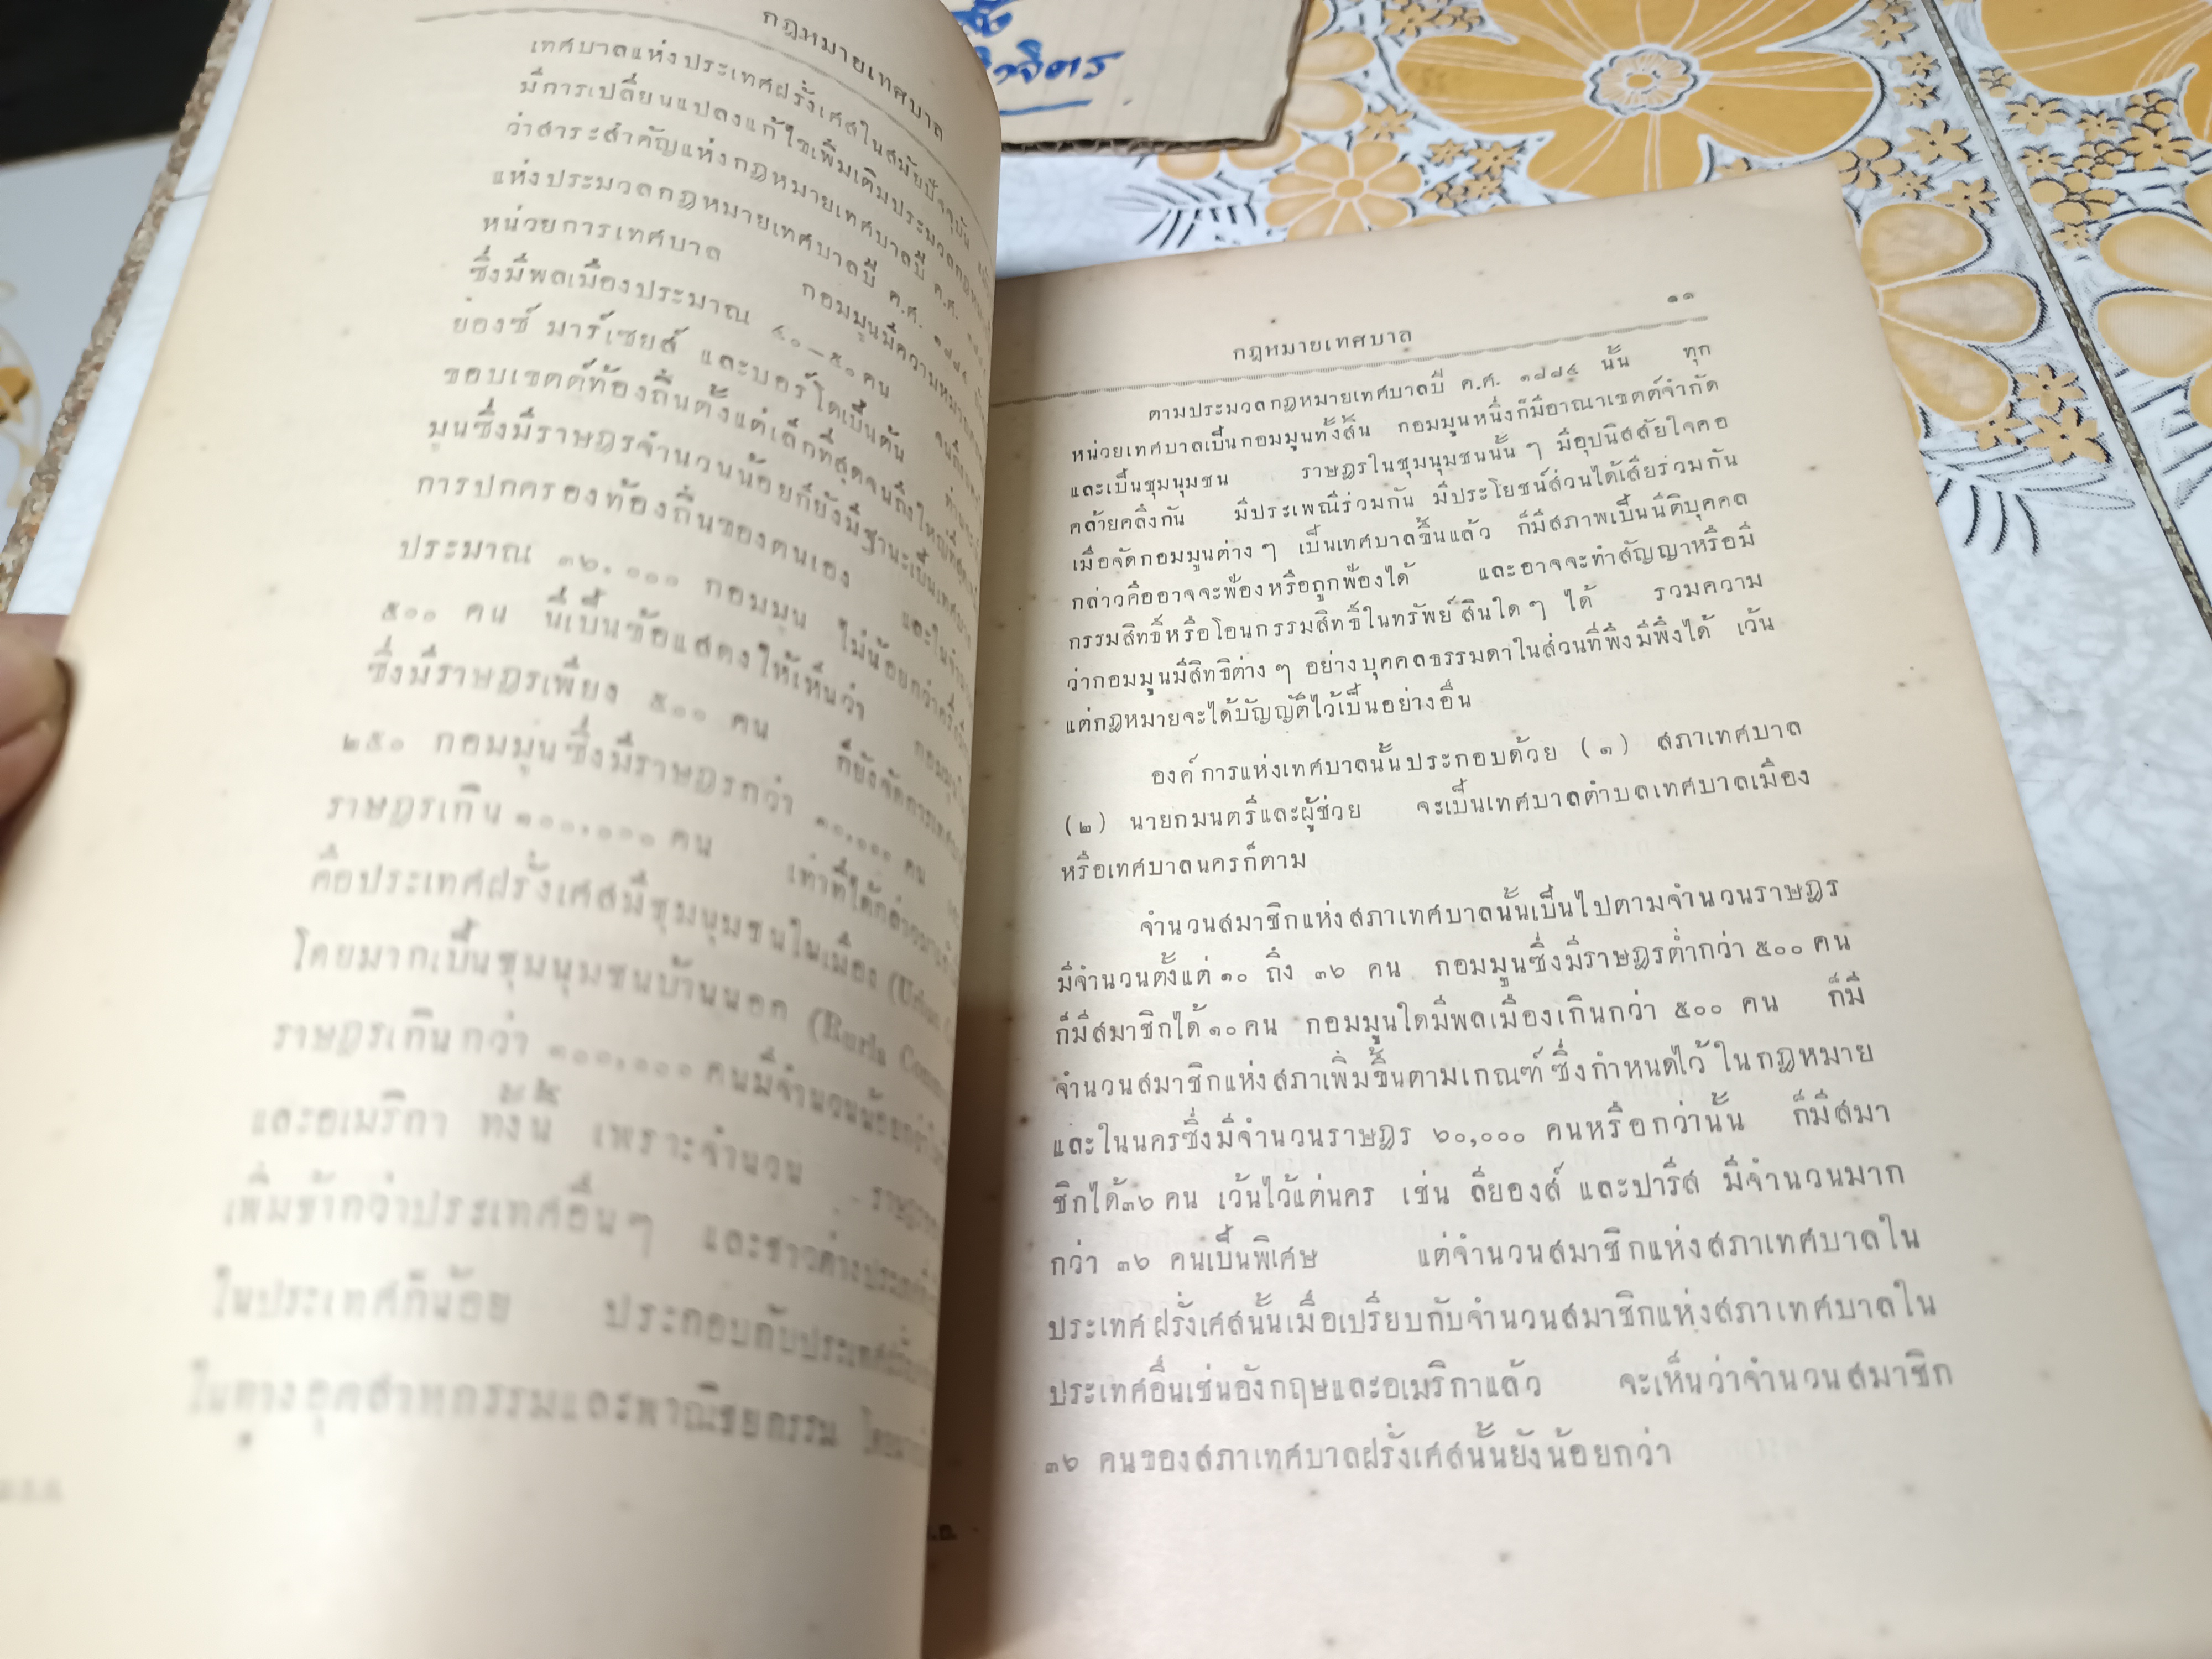 กฎหมายเทศบาล
เทศบาลแห่งประเทศฝรั่งเศสในสมัยปัจจุบัน
มีการเปลี่ยนแปลงแก้ไขเพิ่มเติมประมวลกฎหมาย
ว่าสาระสำคัญแห่งกฎหมายเทศบาลปี ค.ศ.
แห่งประมวลกฎหมายเทศบาลปี ค.ศ. ๑๘๘๔
หน่วยการเทศบาล กอมมูนมีความหมาย
ซึ่งมีพลเมืองประมาณ ๔๐–๕๐ คน
ยองซ์ มาร์เซยส์ และบอร์โดเป็นต้น
ขอบเขตต์ท้องถิ่นตั้งแต่เล็กที่สุดจนถึงใหญ่ที่สุด
มูนซึ่งมีราษฎรจำนวนน้อยก็ยังมีฐานะเป็นเทศบาล
การปกครองท้องถิ่นของตนเอง และในจำนวน
ประมาณ ๓๖,๐๐๐ กอมมูน ไม่น้อยกว่าครึ่ง
๕๐๐ คน นี่เป็นข้อแสดงให้เห็นว่า กอมมูน
ซึ่งมีราษฎรเพียง ๕๐๐ คน ก็ยังจัดการเทศบาล
๒๕๐ กอมมูนซึ่งมีราษฎรกว่า ๑๐,๐๐๐ คน
ราษฎรเกิน ๑๐๐,๐๐๐ คน เท่าที่ได้กล่าวมาแล้ว
คือประเทศฝรั่งเศสมีชุมนุมชนในเมือง (Urban
โดยมากเป็นชุมนุมชนบ้านนอก (Rural
ราษฎรเกินกว่า ๑๐๐,๐๐๐ คนมีจำนวนน้อยกว่า
และอเมริกา ทั้งนี้ เพราะจำนวน ราษฎร
เพิ่มช้ากว่าประเทศอื่นๆ และชาวต่างประเทศ
ในประเทศก็น้อย ประกอบกับประเทศฝรั่งเศส
ในทางอุตสาหกรรมและพาณิชยกรรม
วิจิตร
๑๑
กฎหมายเทศบาล
ตามประมวลกฎหมายเทศบาลปี ค.ศ. ๑๘๘๔ นั้น ทุก
หน่วยเทศบาลเป็นกอมมูนทั้งสิ้น กอมมูนหนึ่งก็มีอาณาเขตต์จำกัด
และเป็นชุมนุมชน ราษฎรในชุมนุมชนนั้น ๆ มีอุปนิสสัยใจคอ
คล้ายคลึงกัน มีประเพณีร่วมกัน มีประโยชน์ส่วนได้เสียร่วมกัน
เมื่อจัดกอมมูนต่าง ๆ เป็นเทศบาลขึ้นแล้ว ก็มีสภาพเป็นนีติบุคคล
กล่าวคืออาจจะฟ้องหรือถูกฟ้องได้ และอาจจะทำสัญญาหรือมี
กรรมสิทธิ์หรือโอนกรรมสิทธิ์ในทรัพย์สินใด ๆ ได้ รวมความ
ว่ากอมมูนมีสิทธิต่าง ๆ อย่างบุคคลธรรมดาในส่วนที่พึงมีพึงได้ เว้น
แต่กฎหมายจะได้บัญญัติไว้เป็นอย่างอื่น
องค์การแห่งเทศบาลนั้นประกอบด้วย (๑) สภาเทศบาล
(๒) นายกมนตรีและผู้ช่วย จะเป็นเทศบาลตำบลเทศบาลเมือง
หรือเทศบาลนครก็ตาม
จำนวนสมาชิกแห่งสภาเทศบาลนั้นเป็นไปตามจำนวนราษฎร
มีจำนวนตั้งแต่ ๑๐ ถึง ๓๖ คน กอมมูนซึ่งมีราษฎรต่ำกว่า ๕๐๐ คน
ก็มีสมาชิกได้ ๑๐ คน กอมมูนใดมีพลเมืองเกินกว่า ๕๐๐ คน ก็มี
จำนวนสมาชิกแห่งสภาเพิ่มขึ้นตามเกณฑ์ซึ่งกำหนดไว้ในกฎหมาย
และในนครซึ่งมีจำนวนราษฎร ๖๐,๐๐๐ คนหรือกว่านั้น ก็มีสมา
ชิกได้ ๓๖ คน เว้นไว้แต่นคร เช่น ลียองส์ และปารีส มีจำนวนมาก
กว่า ๓๖ คนเป็นพิเศษ แต่จำนวนสมาชิกแห่งสภาเทศบาลใน
ประเทศฝรั่งเศสนั้นเมื่อเปรียบกับจำนวนสมาชิกแห่งสภาเทศบาลใน
ประเทศอื่นเช่นอังกฤษและอเมริกาแล้ว จะเห็นว่าจำนวนสมาชิก
๓๖ คนของสภาเทศบาลฝรั่งเศสนั้นยังน้อยกว่า